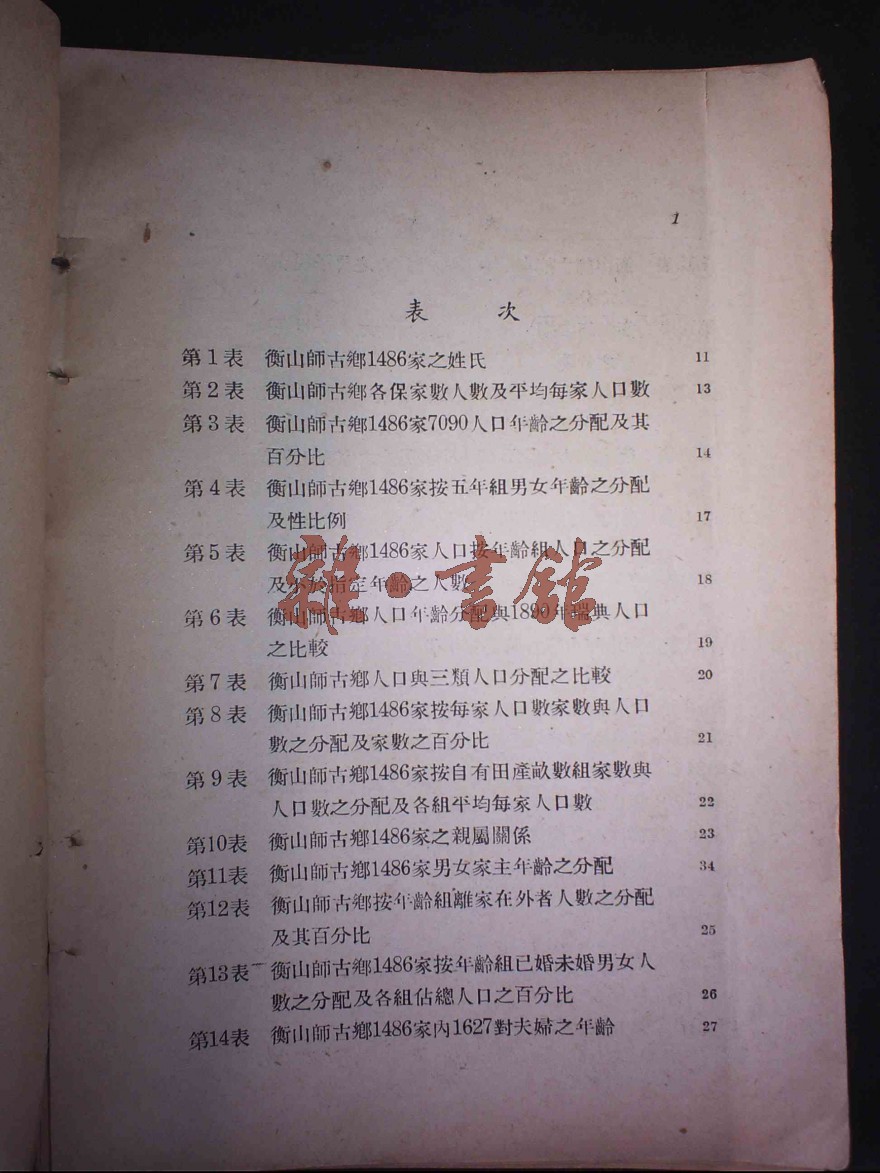 1
表 次
第1表 衡山師古鄉1486家之姓氏 11
第2表 衡山師古鄉各保家數人數及平均每家人口數 13
第3表 衡山師古鄉1486家7090人口年齡之分配及其
百分比 14
第4表 衡山師古鄉1486家按五年組男女年齡之分配
及性比例 17
第5表 衡山師古鄉1486家人口按年齡組人口之分配
及小於指定年齡之人數 18
第6表 衡山師古鄉人口年齡分配與1890年瑞典人口
之比較 19
第7表 衡山師古鄉人口與三類人口分配之比較 20
第8表 衡山師古鄉1486家按每家人口數家數與人口
數之分配及家數之百分比 21
第9表 衡山師古鄉1486家按自有田產畝數組家數與
人口數之分配及各組平均每家人口數 22
第10表 衡山師古鄉1486家之親屬關係 23
第11表 衡山師古鄉1486家男女家主年齡之分配 34
第12表 衡山師古鄉按年齡組離家在外者人數之分配
及其百分比 25
第13表 衡山師古鄉1486家按年齡組已婚未婚男女人
數之分配及各組佔總人口之百分比 26
第14表 衡山師古鄉1486家內1627對夫婦之年齡 27
雜·書館